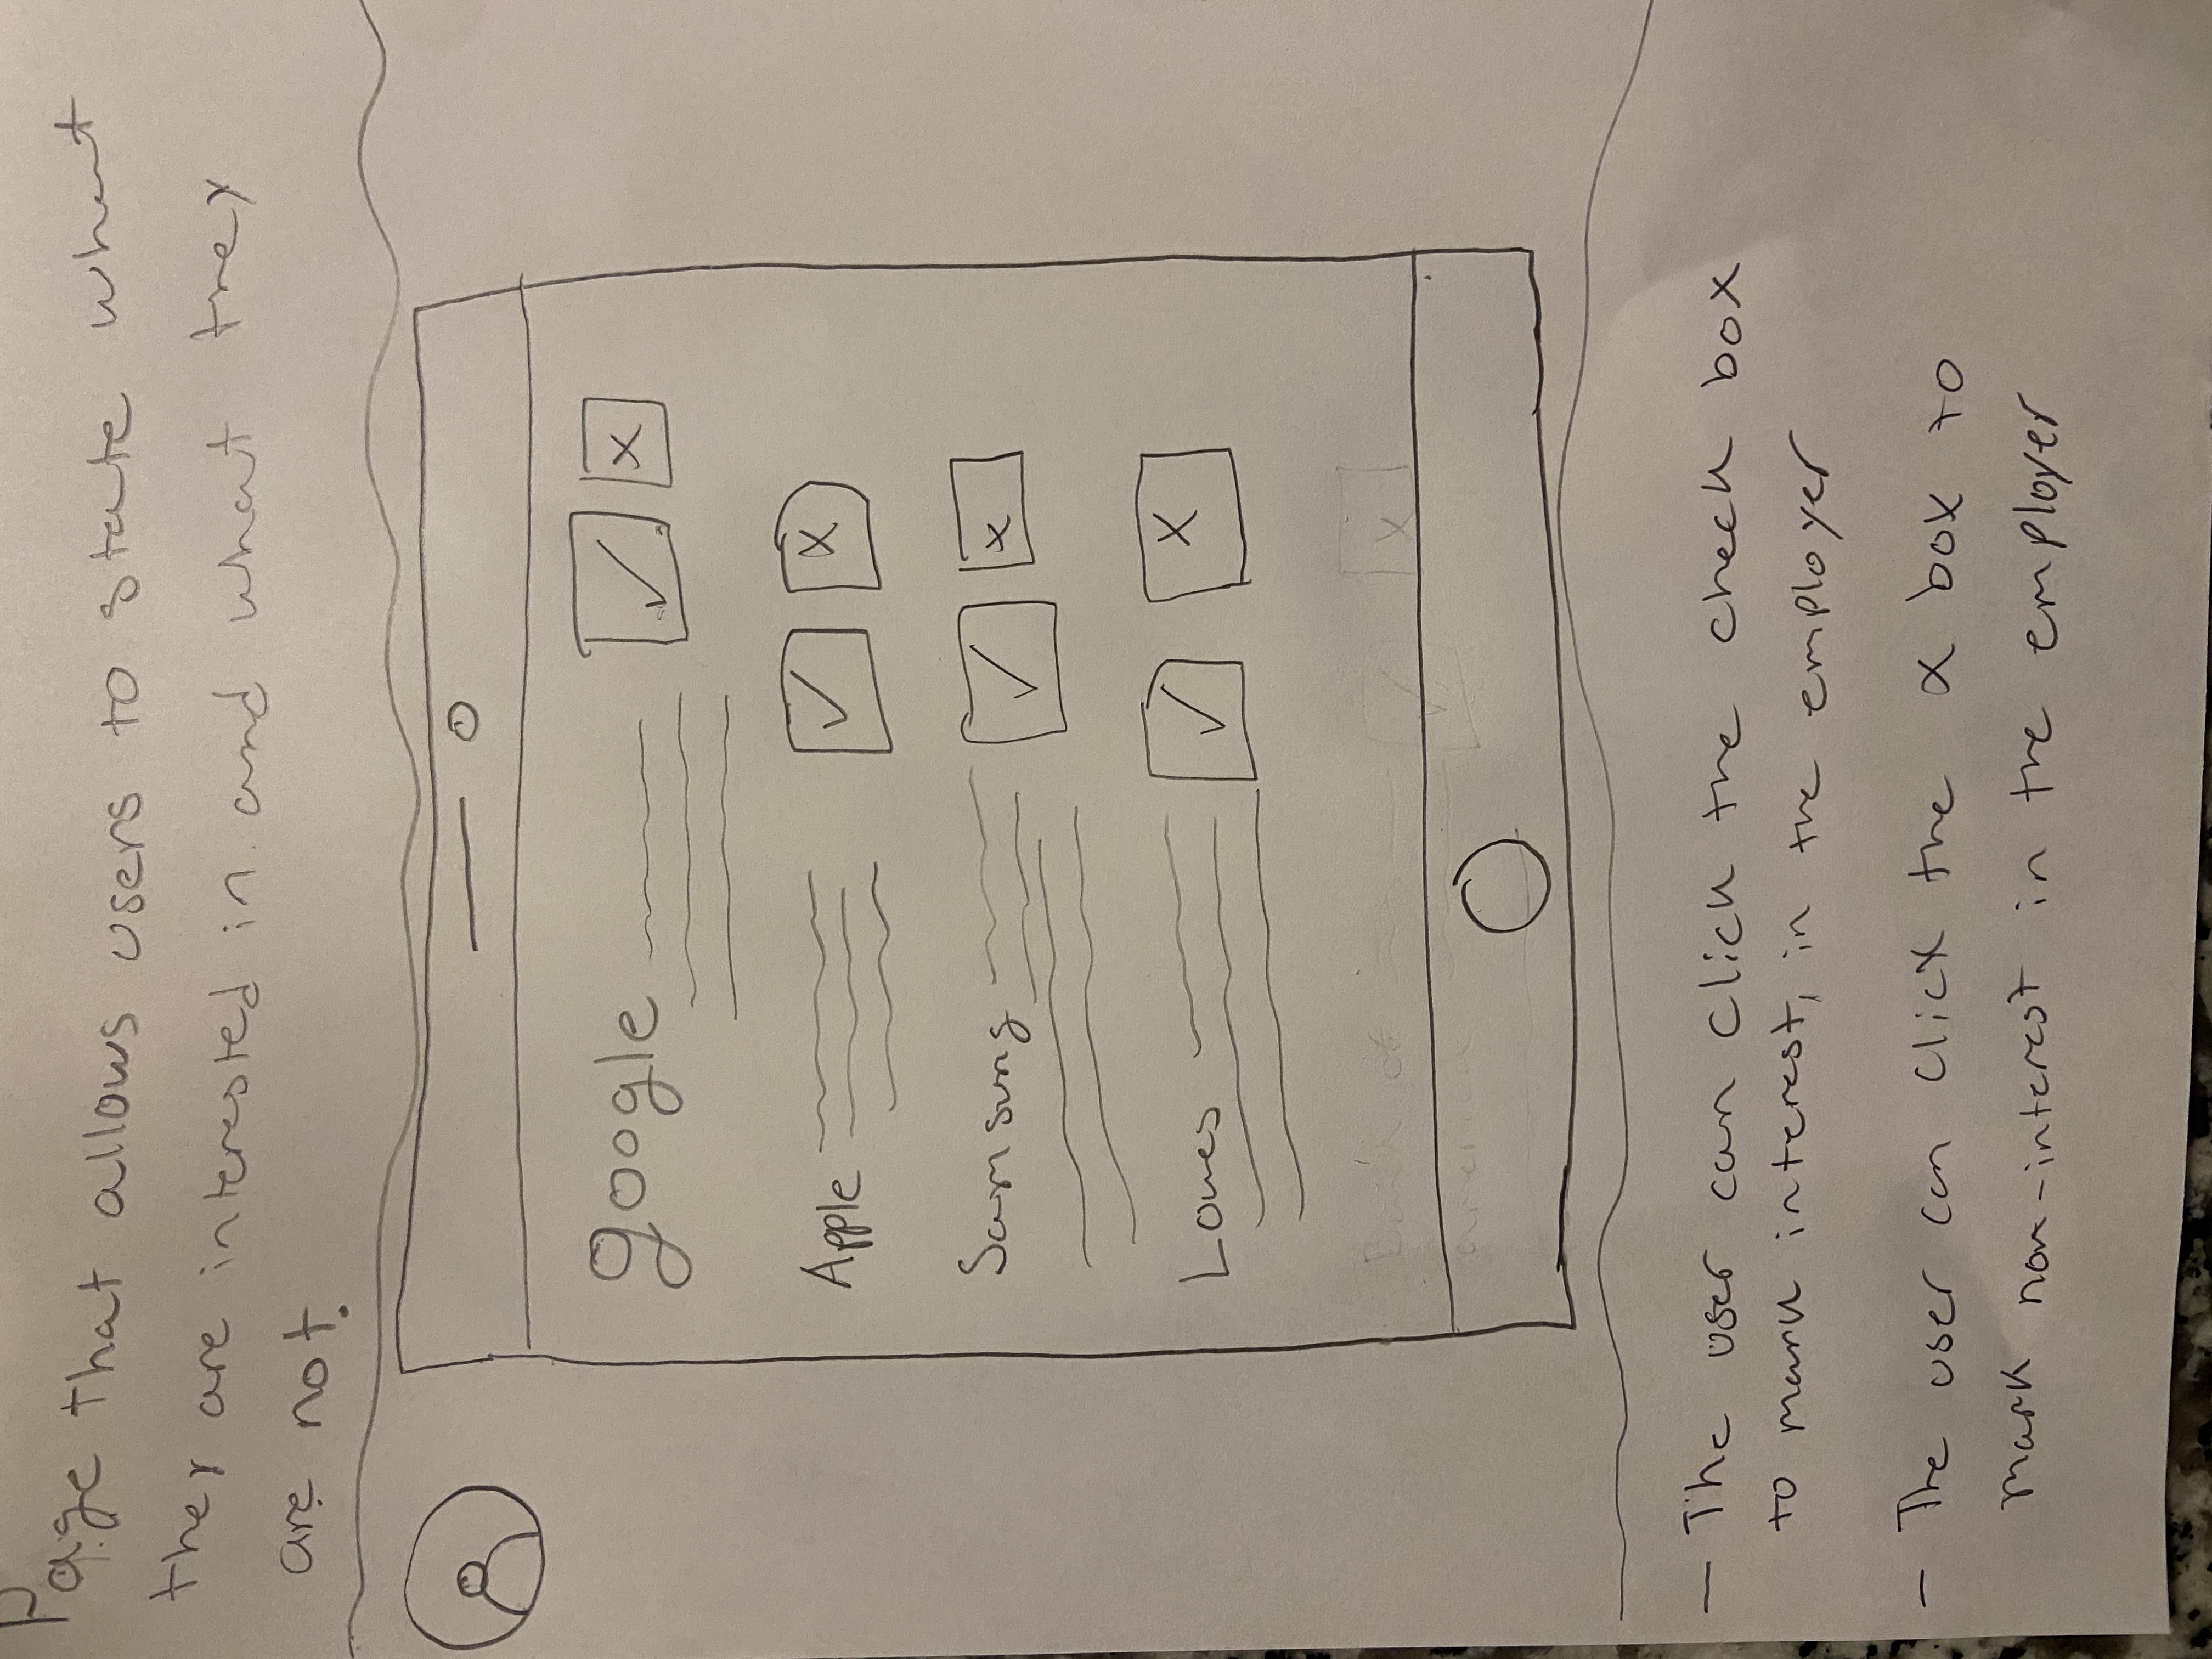 Page that allows users to state what
they are interested in and what they
are not.
google
Apple
Samsung
Lowes
Bank of
america
- The user can click the check box
to mark interest, in the employer
- The user can click the x box to
mark non-interest in the employer